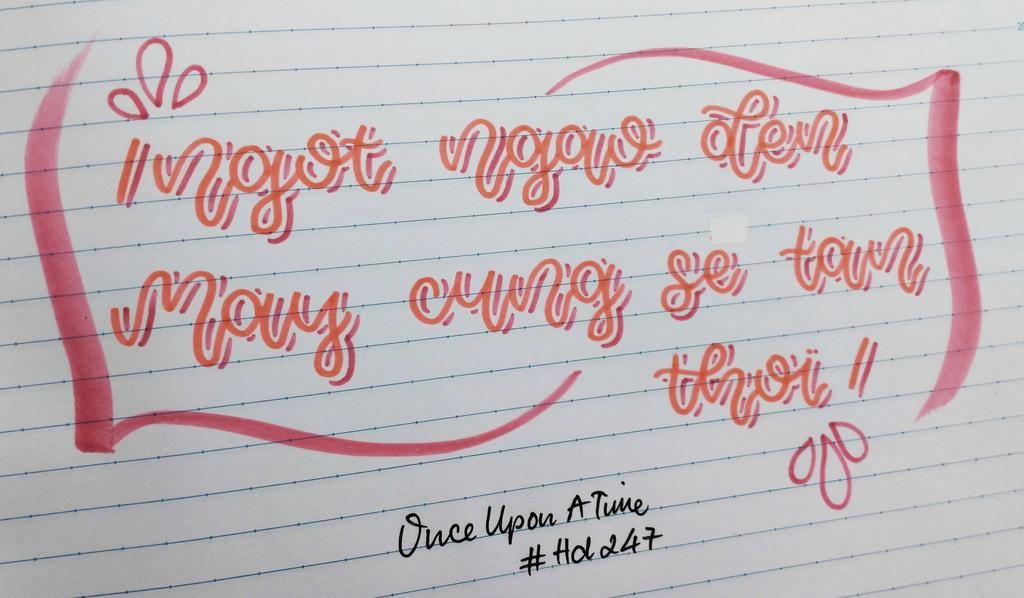 "ngọt ngào đến
mấy cũng sẽ tàn
thôi"
Once Upon A Time
#Hd247